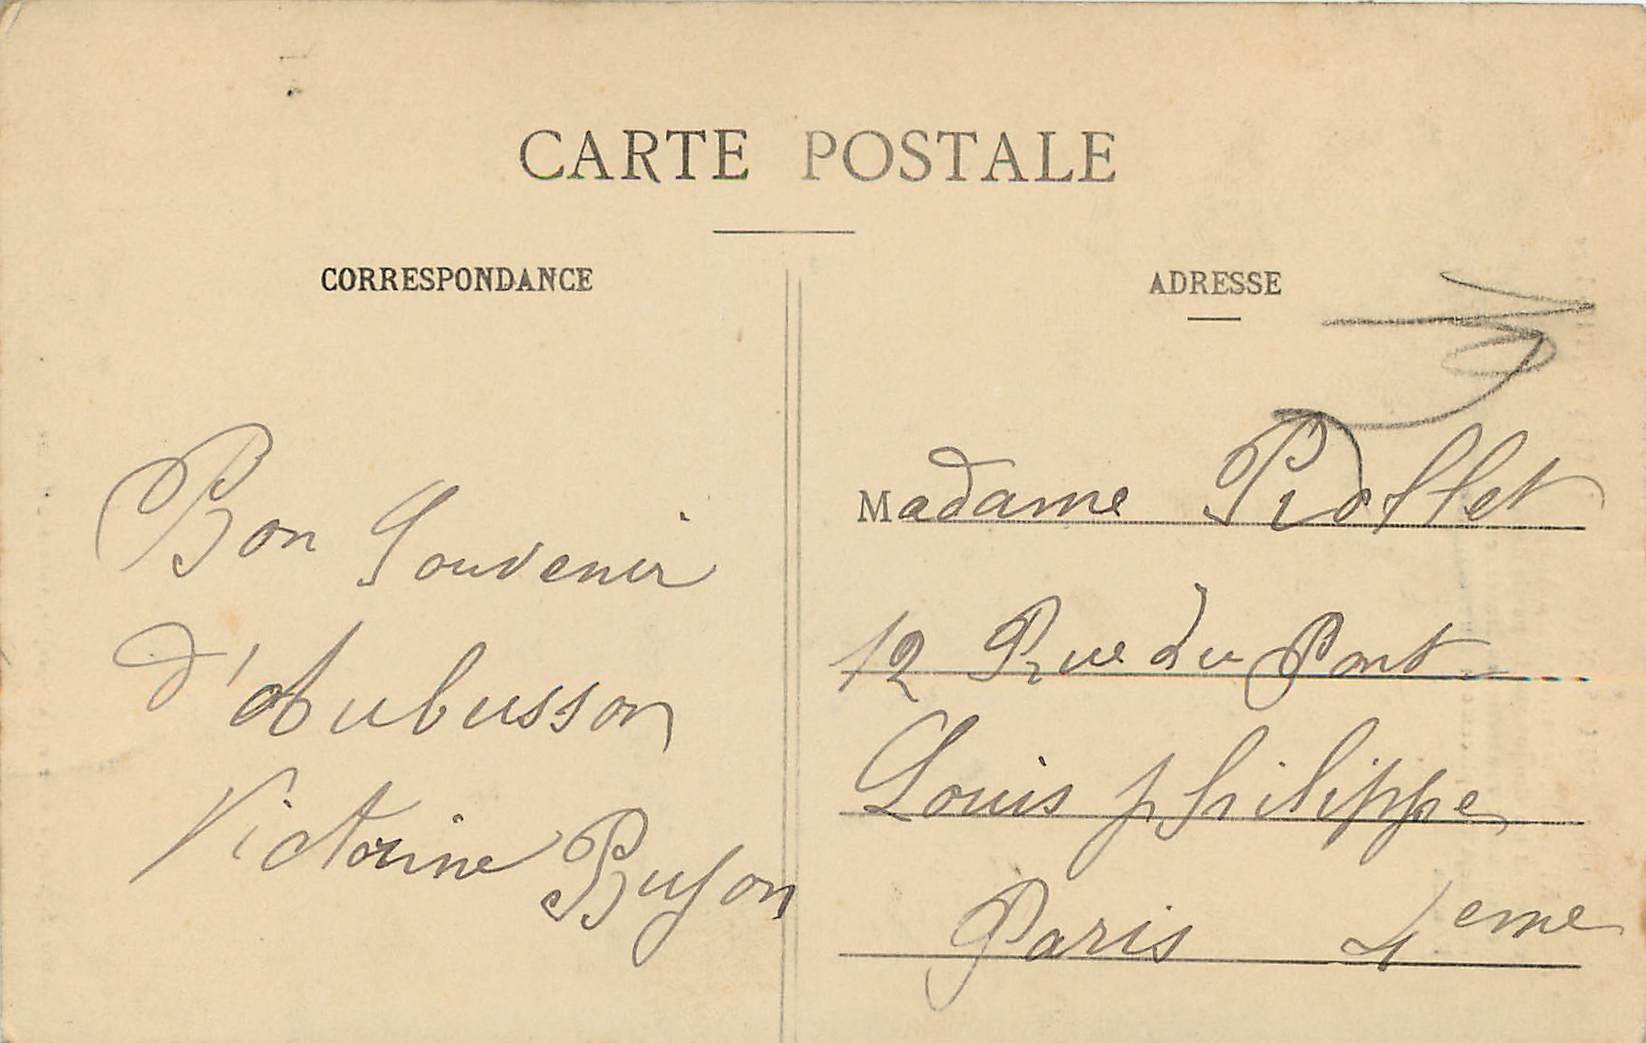 CARTE POSTALE
CORRESPONDANCE
Bon Souvenir
d'Aubusson
Victorine Buyon
ADRESSE
Madame Piollet
12 Rue du Pont
Louis philippe
Paris 4eme